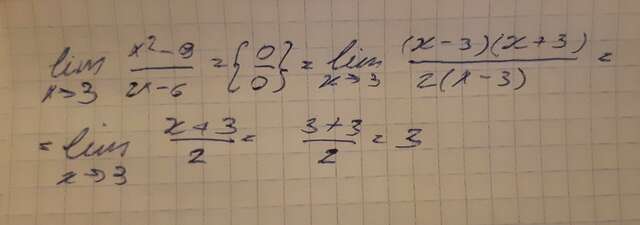 lim x→3 (x² - 9)/(2x - 6) = {0/0} = lim x→3 ((x - 3)(x + 3))/(2(x - 3)) =
= lim x→3 (x + 3)/2 = (3 + 3)/2 = 3